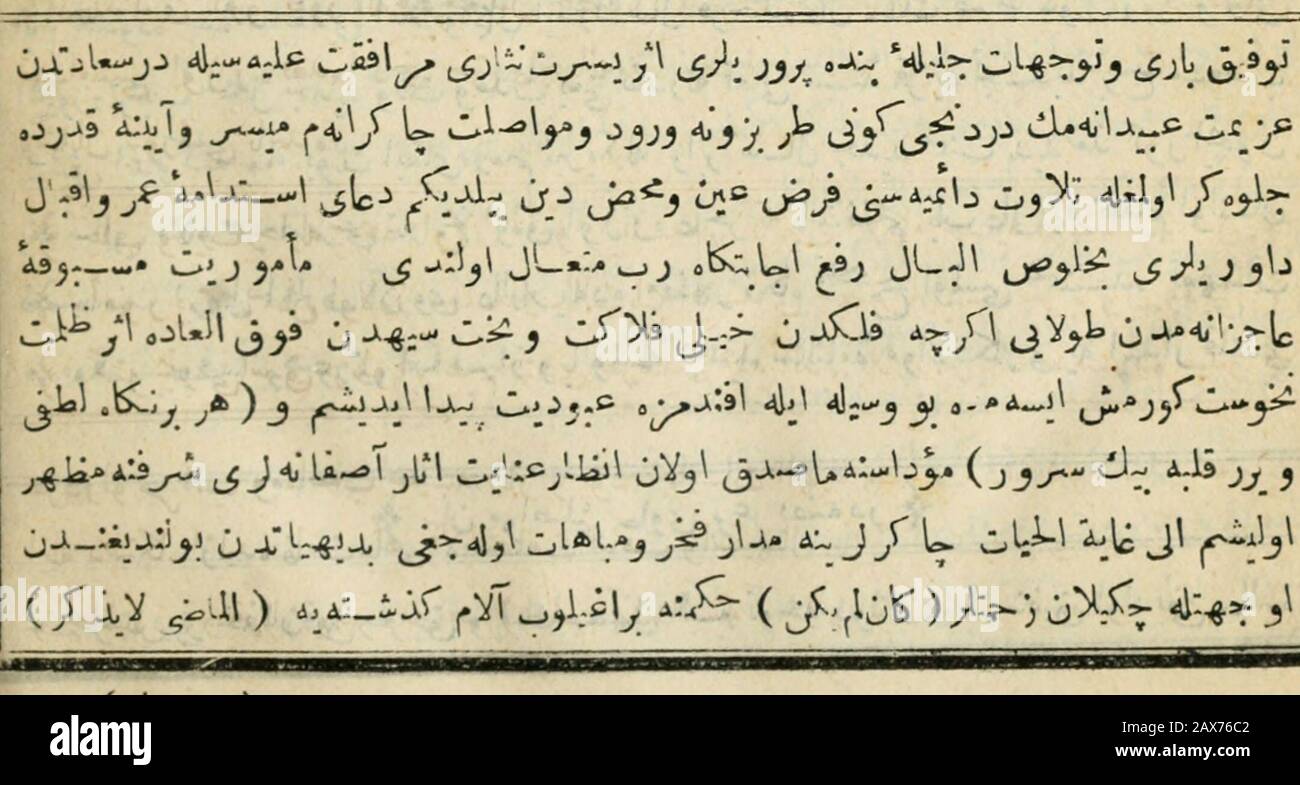 توفیق باری وتوجهات جلیلهٔ بنده پرور یلری اثر یسرت نثاری مرافقت علیه سیله درسعادتدن
عزیمت عبیدانه‌مك دردنجی کونی طر بزونه ورود ومواصلت چاکرانه‌م میسر وآیینهٔ قدرده
جلوه کر اولمغله تلاوت دائمیه‌سنی فرض عین ومحض دین بیلدیکم دعای استدامهٔ عمر واقبال
داور یلری بخلوص البال رفع اجابتکاه رب متعال اولندی مأموریت مسبوقهٔ
عاجزانه‌مدن طولایی اکرچه فلکدن خیلی فلاکت و بخت سیهدن فوق العاده اثر ظلمت
نحوست کورمش ایسه‌مده بو وسیله ایله افندمزه عبودیت پیدا ایدیشم و (هر برنکاه لطفی
ویرر قلبه بیك سرور) مؤداسنه ماصدق اولان انظار عنایت اثار آصفانه لری شرفنه مظهر
اولیشم الی غایة الحیات چاکرلرینه مدار فخر ومباهات اوله جغی بدیهیاتدن بولندیغندن
او جهتله چکیلان زحمتلر (کان لم یکن) حکمنه براغیلوب آلام کذشته‌یه (الماضی لایذکر)
alamy
Image ID: 2AX76C2
www.alamy.com